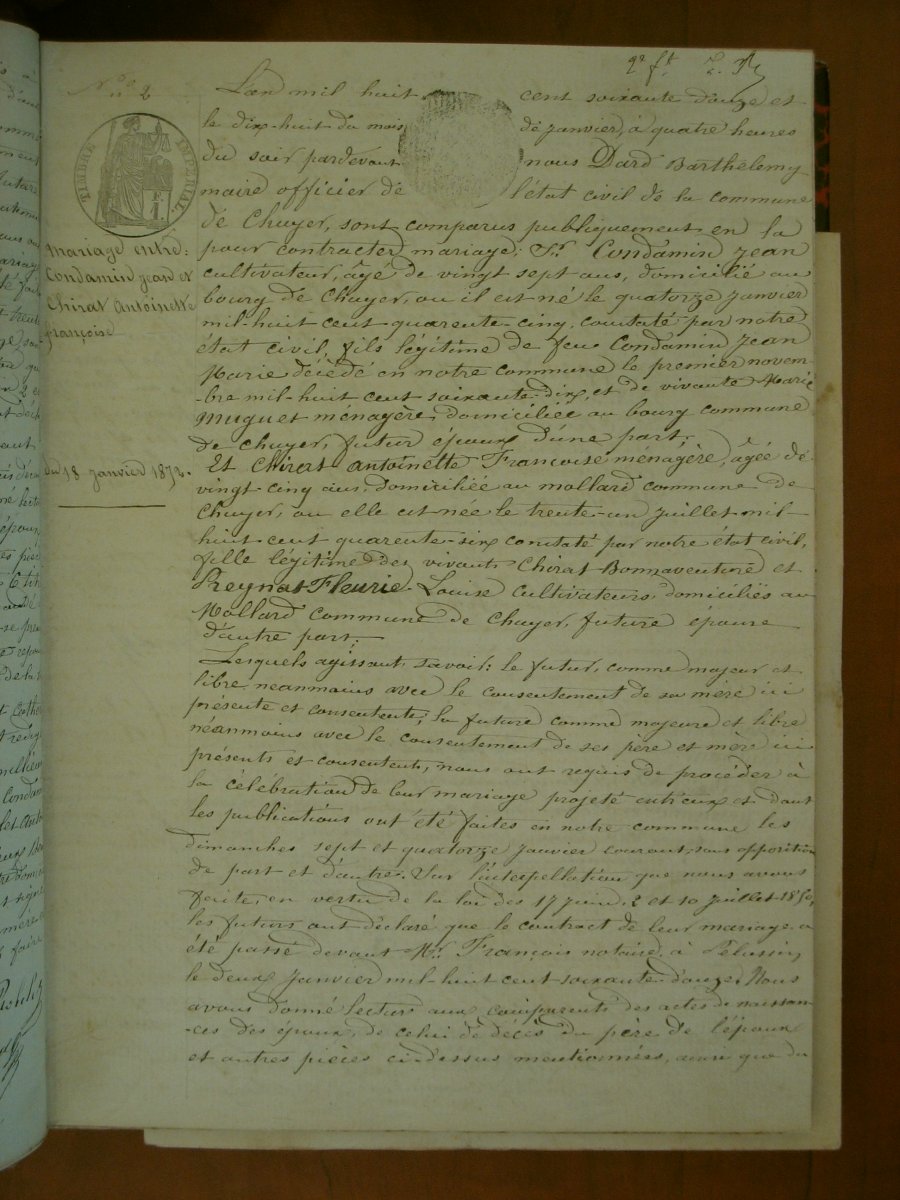 N° 2
TIMBRE IMPÉRIAL
1 F.
Mariage entre:
Condamin Jean et
Chirat Antoinette
françoise
du 18 janvier 1872.
L'an mil huit cent soixante douze et
le dix-huit du mois de janvier, à quatre heures
du soir pardevant nous Dard Barthelemy
maire officier de l'état civil de la commune
de Chuyer, sont comparus publiquement en la
pour contracter mariage; Sr. Condamin Jean
cultivateur, agé de vingt sept ans, domicilié au
bourg de Chuyer, ou il est né le quatorze janvier
mil-huit cent quarente-cinq, constaté par notre
état civil, fils légitime de feu Condamin Jean
Marie décédé en notre commune le premier novem-
-bre mil-huit cent soixante-dix, et de vivante Marie
Muguet ménagère, domiciliée au bourg commune
de Chuyer, futur époux d'une part;
Et Chirat Antoinette Françoise ménagère, âgée de
vingt cinq ans, domiciliée au mollard commune de
Chuyer, ou elle est née le trente-un juillet mil-
huit cent quarente-six constaté par notre état civil,
fille légitime des vivants Chirat Bonnaventure et
Reynat Fleurie-Louise cultivateurs domiciliés au
Mollard commune de Chuyer, future épouse
d'autre part;
Lesquels agissant, savoir: le futur, comme majeur et
libre néanmoins avec le consentement de sa mère ici
présente et consentente; la future comme majeure et libre
néanmoins avec le consentement de ses père et mère ici
présents et consentents, nous ont requis de procéder à
la célébration de leur mariage projeté entr'eux et dont
les publications ont été faites en notre commune les
dimanches sept et quatorze janvier courant, sans opposition
de part et d'autre. Sur l'interpellation que nous avons
faite, en vertu de la loi des 17 juin, 2 et 10 juillet 1850,
les futurs ont déclaré que le contract de leur mariage a
été passé devant Mr. François notaire, à Pelussin,
le deux janvier mil-huit cent soixante-douze. Nous
avons donné lecture aux comparents des actes de naissan-
-ces des époux, de celui de décès du père de l'époux
et autres pièces ci-dessus mentionnées, ainsi que du